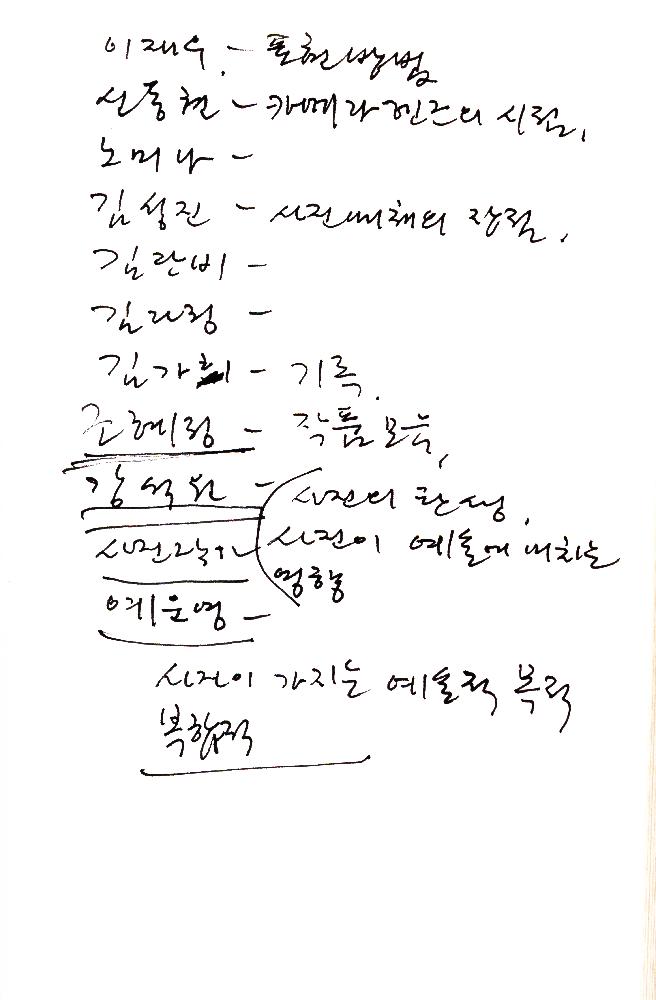 이재우 - 표현방법
신동현 - 카메라 렌즈의 시점,
노미나 -
김성진 - 사진매체의 장점,
김란비 -
김리정 -
김가희 - 기록,
조혜정 - 작품모음,
강석원 - 사진의 탄생,
사진이 예술에 미치는
영향
예운영 -
사진이 가지는 예술적 목적
복합적